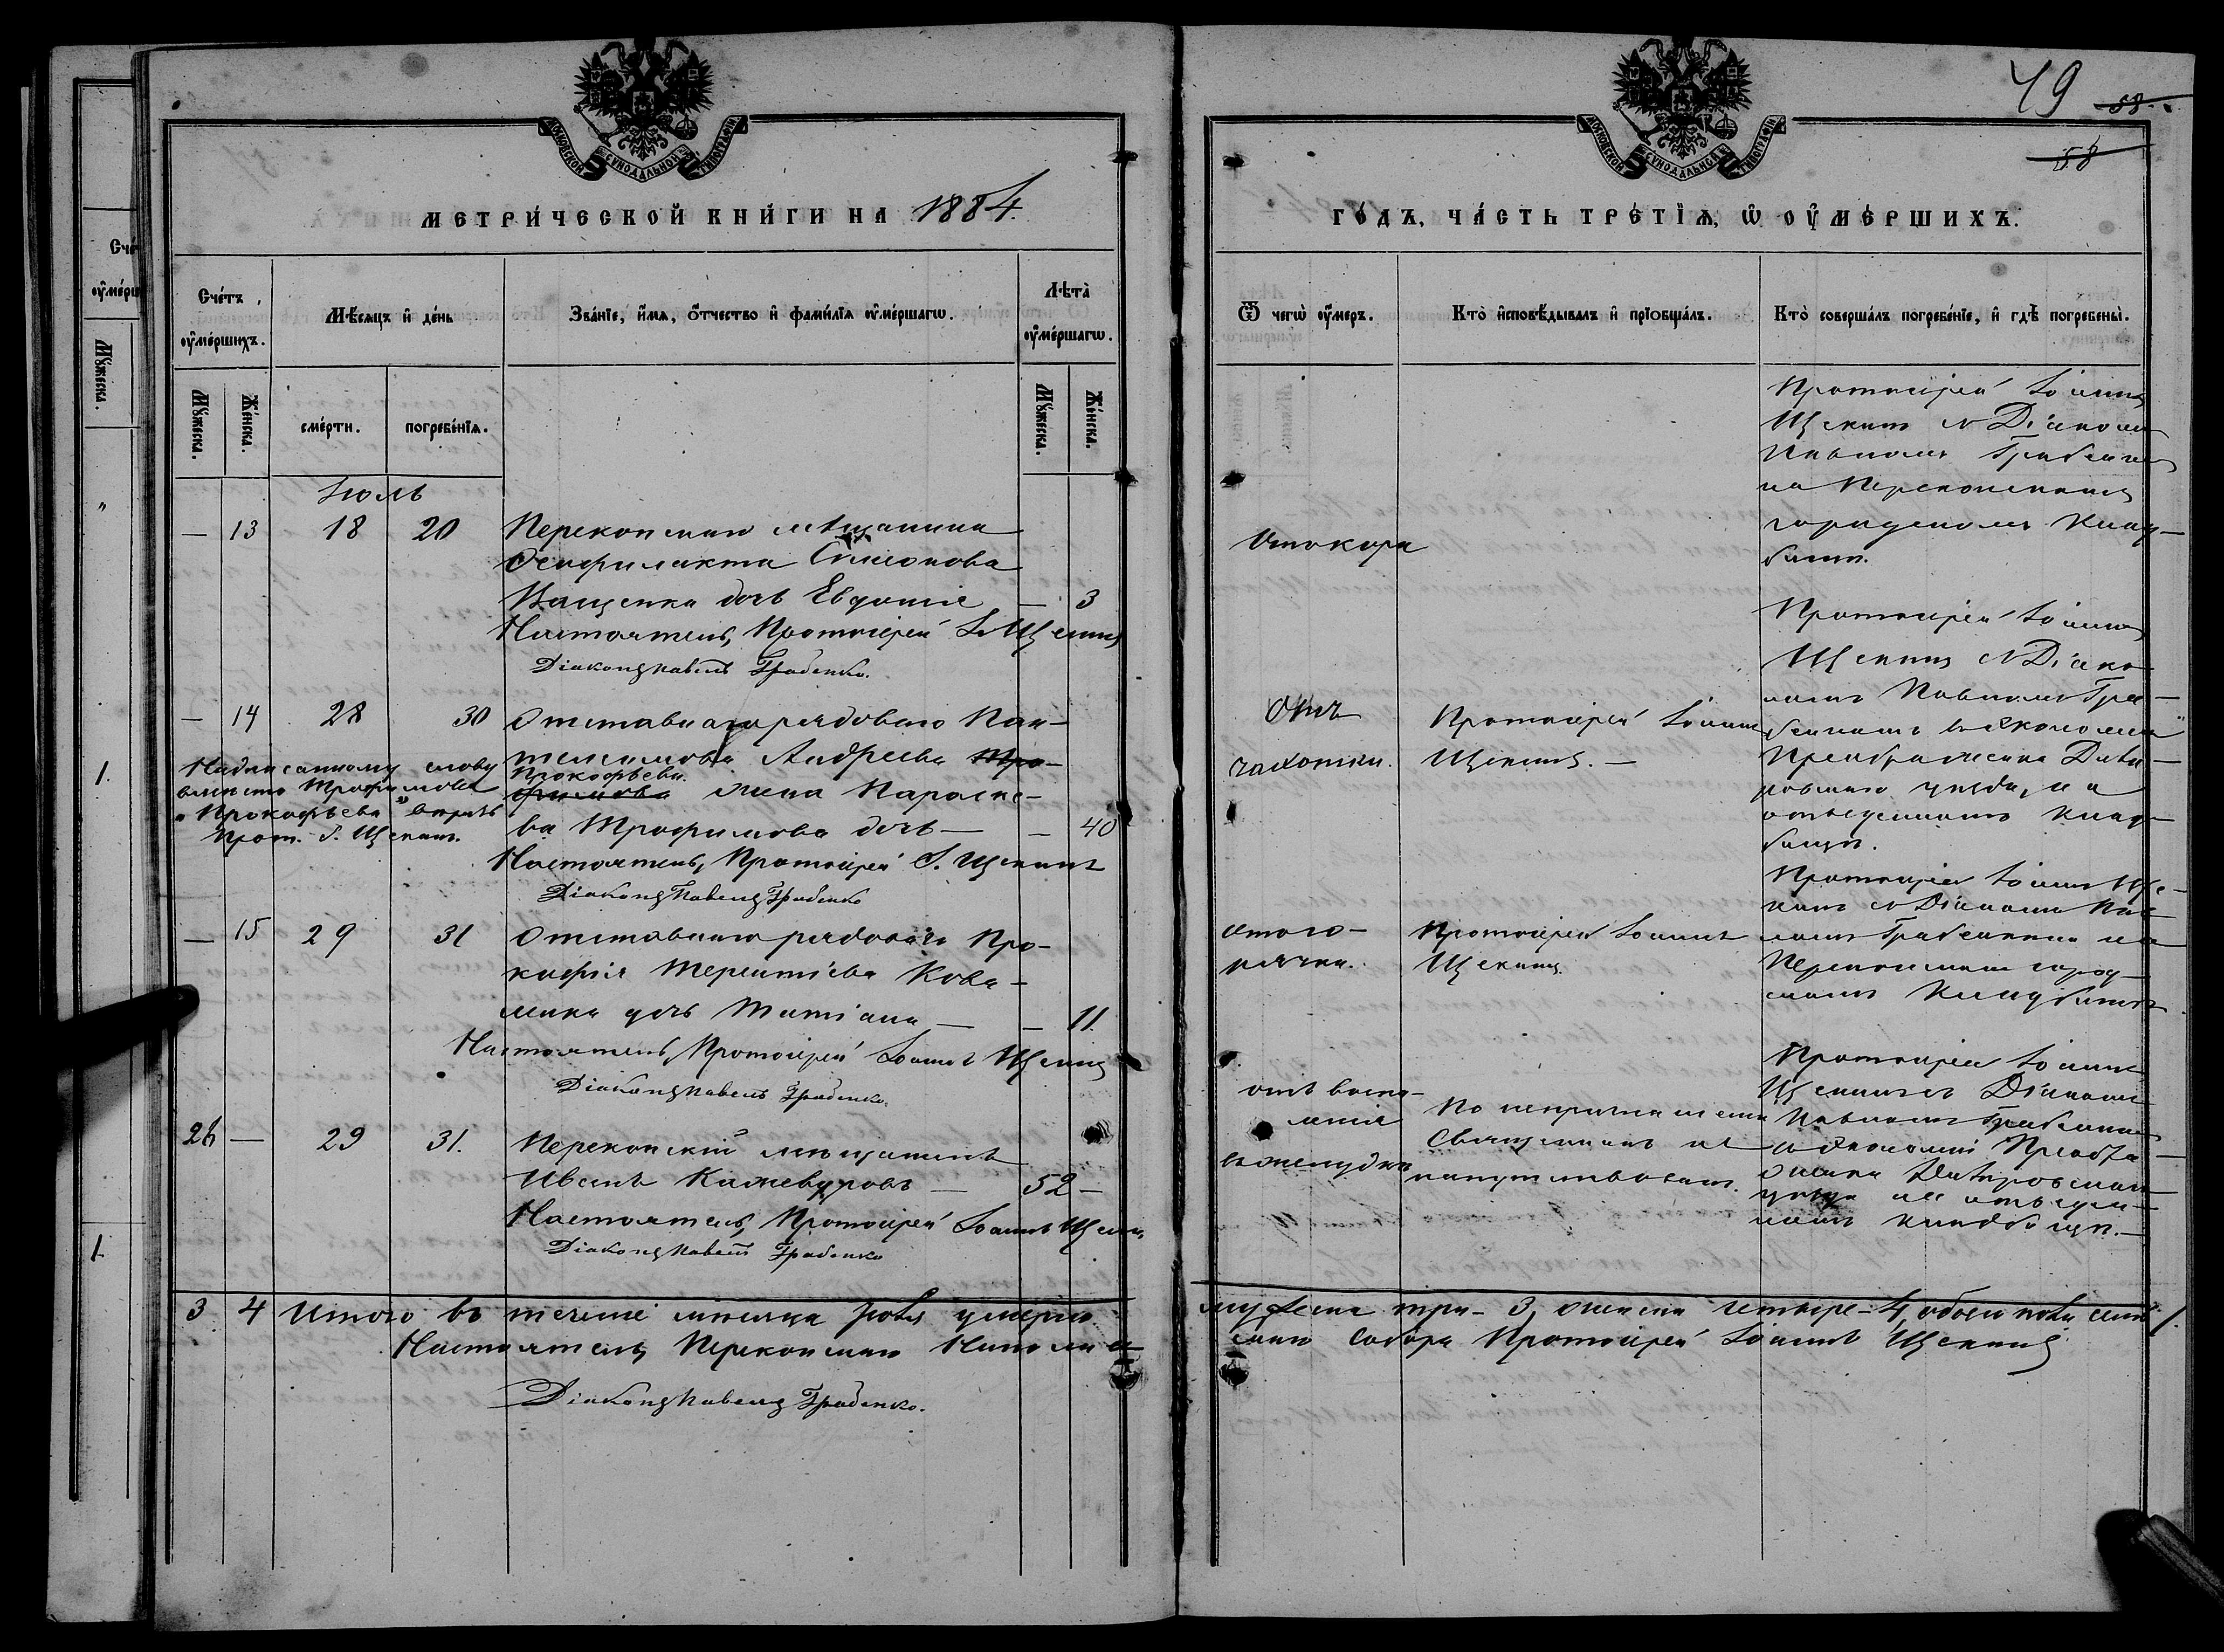 МОСКОВСКОЙ СѴНОДАЛЬНОЙ ТИПОГРАФІИ
МЕТРИ́ЧЕСКОЙ КНИ́ГИ НА 1884.
Сче́тъ оу҆ме́ршихъ.
Мѣ́сяцъ и҆ де́нь
Зва́нїе, и҆́мя, ѻ҆́тчество и҆ фами́лїя оу҆ме́ршагѡ.
Лѣта̀ оу҆ме́ршагѡ.
Мꙋ́жеска.
Же́нска.
сме́рти.
погребе́нїѧ.
Мꙋ́жеска.
Же́нска.
Іюль
— 13 18 20 Перекопскаго мѣщанина
Ѳеофилакта Симонова
Ващенка дочь Евдокія — 3
Настоятель, Протоіерей І. Щекинъ
Діаконъ Павелъ Грабенко.
— 14 28 30 Отставнаго рядоваго Пан-
телеимова Андреева Тро-
Прокофьева.
фимова жена Параске-
ва Трофимова дочь — — 40
Настоятель, Протоіерей І. Щекинъ
Діаконъ Павелъ Грабенко
Надписанному слову
вмѣсто Трофимова
„Прокофьева" вѣрить
Прот. І. Щекинъ.
— 15 29 31 Отставнаго рядоваго Про-
кофія Терентіева Кова-
дочь Татіана — — 11.
Настоятель, Протоіерей Іоаннъ Щекинъ
Діаконъ Павелъ Грабенко.
— 29 31. Перекопскій мѣщанинъ
Иванъ — 52 —
Настоятель, Протоіерей Іоаннъ Щекинъ
Діаконъ Павелъ Грабенко
3 4 Итого въ теченіе мѣсяца Іюля умерло
Настоятель Перекопскаго Никола-
Діаконъ Павелъ Грабенко.
49 58
58
МОСКОВСКОЙ СѴНОДАЛЬНОЙ ТИПОГРАФІИ
ГО́ДЪ, ЧА́СТЬ ТРЕ́ТЇѦ, Ѡ҆ ОУ҆МЕ́РШИХЪ.
Ѿ чегѡ̀ оу҆́меръ.
Кто̀ и҆сповѣ́дывалъ и҆ прїобща́лъ.
Кто̀ соверша́лъ погребе́нїе, и҆ гдѣ̀ погребены̀.
Отъ кори
Протоіерей Іоаннъ
Щекинъ съ Діакономъ
Павломъ Грабенко
на Перекопскомъ
городскомъ клад-
бищѣ.
Отъ
чахотки.
Протоіерей Іоаннъ
Щекинъ. —
Протоіерей Іоаннъ
Щекинъ съ Діако-
номъ Павломъ Гра-
бенкомъ въ экономіи
Преображенка Днѣп-
ровскаго уѣзда, на
отведенномъ клад-
бищѣ.
отъ го-
рячки.
Протоіерей Іоаннъ
Щекинъ.
Протоіерей Іоаннъ Ще-
кинъ съ Діакономъ Пав-
ломъ Грабенкомъ на
Перекопскомъ город-
скомъ кладбищѣ.
отъ воспа-
ленія
въ желудкѣ
Священникъ не
напутствовалъ.
Протоіерей Іоаннъ
Щекинъ съ Діакономъ
Павломъ Грабенко
въ экономіи Преобра-
женка Днѣпровскаго
уѣзда на отведен-
номъ кладбищѣ. —
мужеска три - 3, женска четыре - 4, обоего пола семь
скаго Собора Протоіерей Іоаннъ Щекинъ
Счетъ
Мꙋ́жеска.
1.
1.